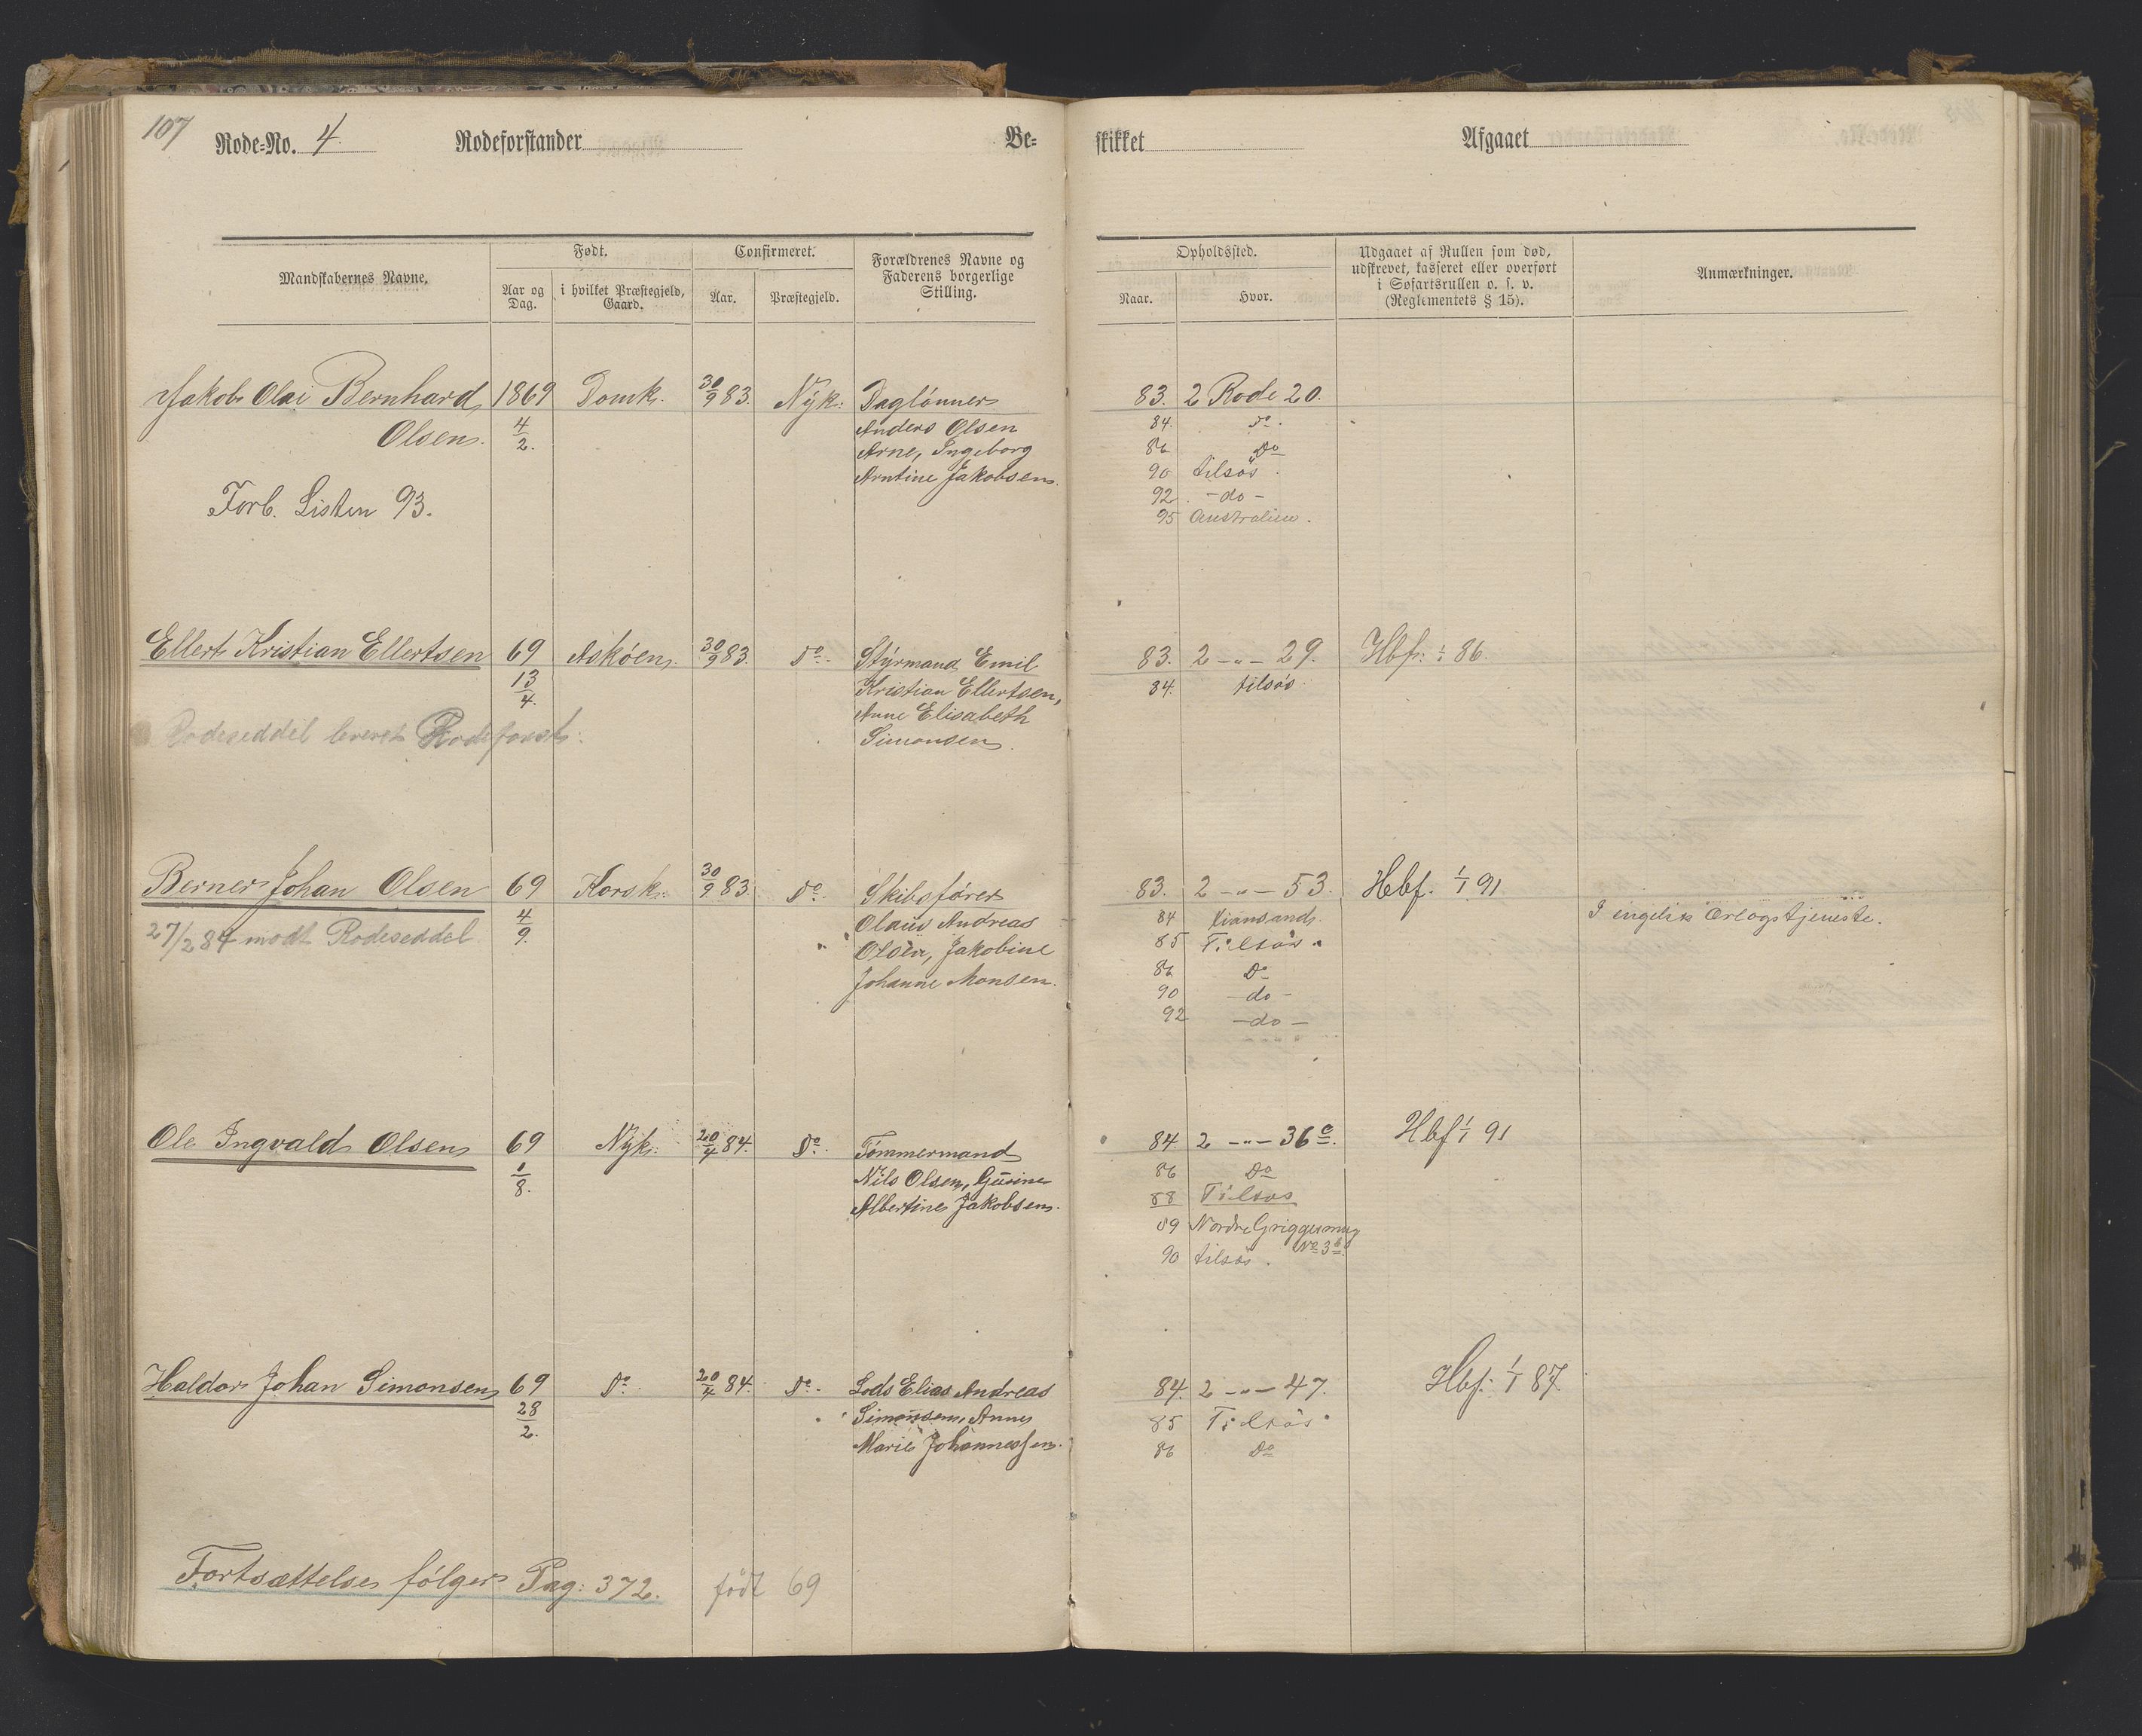 107
Rode-No. 4. Rodeforstander Be-
Mandskabernes Navne.
Født.
Aar og Dag.
i hvilket Præstegjeld, Gaard.
Confirmeret.
Aar.
Præstegjeld.
Forældrenes Navne og
Faderens borgerlige
Stilling.
Jakob Olai Bernhard 1869 Domk. 30/9 83. Nyk: Daglønner
Olsen. 4/2. Anders Olsen
Arne, Ingeborg
Arntine Jakobsen.
Forb. Listen 93.
Ellert Kristian Ellertsen 69 Askøen. 30/9 83. Do. Styrmand Emil
13/4. Kristian Ellertsen,
Anne Elisabeth
Rodeseddel leveret Rodeforst:
Simonsen.
Berner Johan Olsen 69 Korsk: 30/9 83 Do. Skibsfører
27/2 84 modt Rodeseddel 4/9. Olaus Andreas
Olsen, Jakobine
Johanne Monsen.
Ole Ingvald Olsen 69 Nyk: 20/4 84. Do. Tømmermand
1/8. Nils Olsen, Gusine
Albertine Jakobsen.
Haldor Johan Simonsen 69 Do. 20/4 84. Do. Lods Elias Andreas
28/2. Simonsen, Anne
Marie Johannessen.
Fortsættelse følger Pag: 372. født 69
skikket Afgaaet
Opholdssted.
Naar.
Hvor.
Udgaaet af Rullen som død,
udskrevet, kasseret eller overført
i Søfartsrullen o. s. v.
(Reglementets § 15).
Anmærkninger.
83. 2 Rode 20.
84. Do.
86 Do
90 tilsøs.
92. -do-
95 Australien.
83. 2 -"- 29. Hbf: 1/1 86.
84. tilsøs.
83. 2 -"- 53. Hbf. 1/1 91
84 Kiansand.
I engelsk Orlogstjeneste.
85 Tilsøs.
86 Do
90 -do-
92 -do-
84 2 -"- 36c. Hbf 1/1 91
86 Do
88 Tilsøs
89 Nordre Griggesmug
No 3b.
90 tilsøs.
84. 2 -"- 47. Hbf: 1/1 87
85 Tilsøs.
86 Do